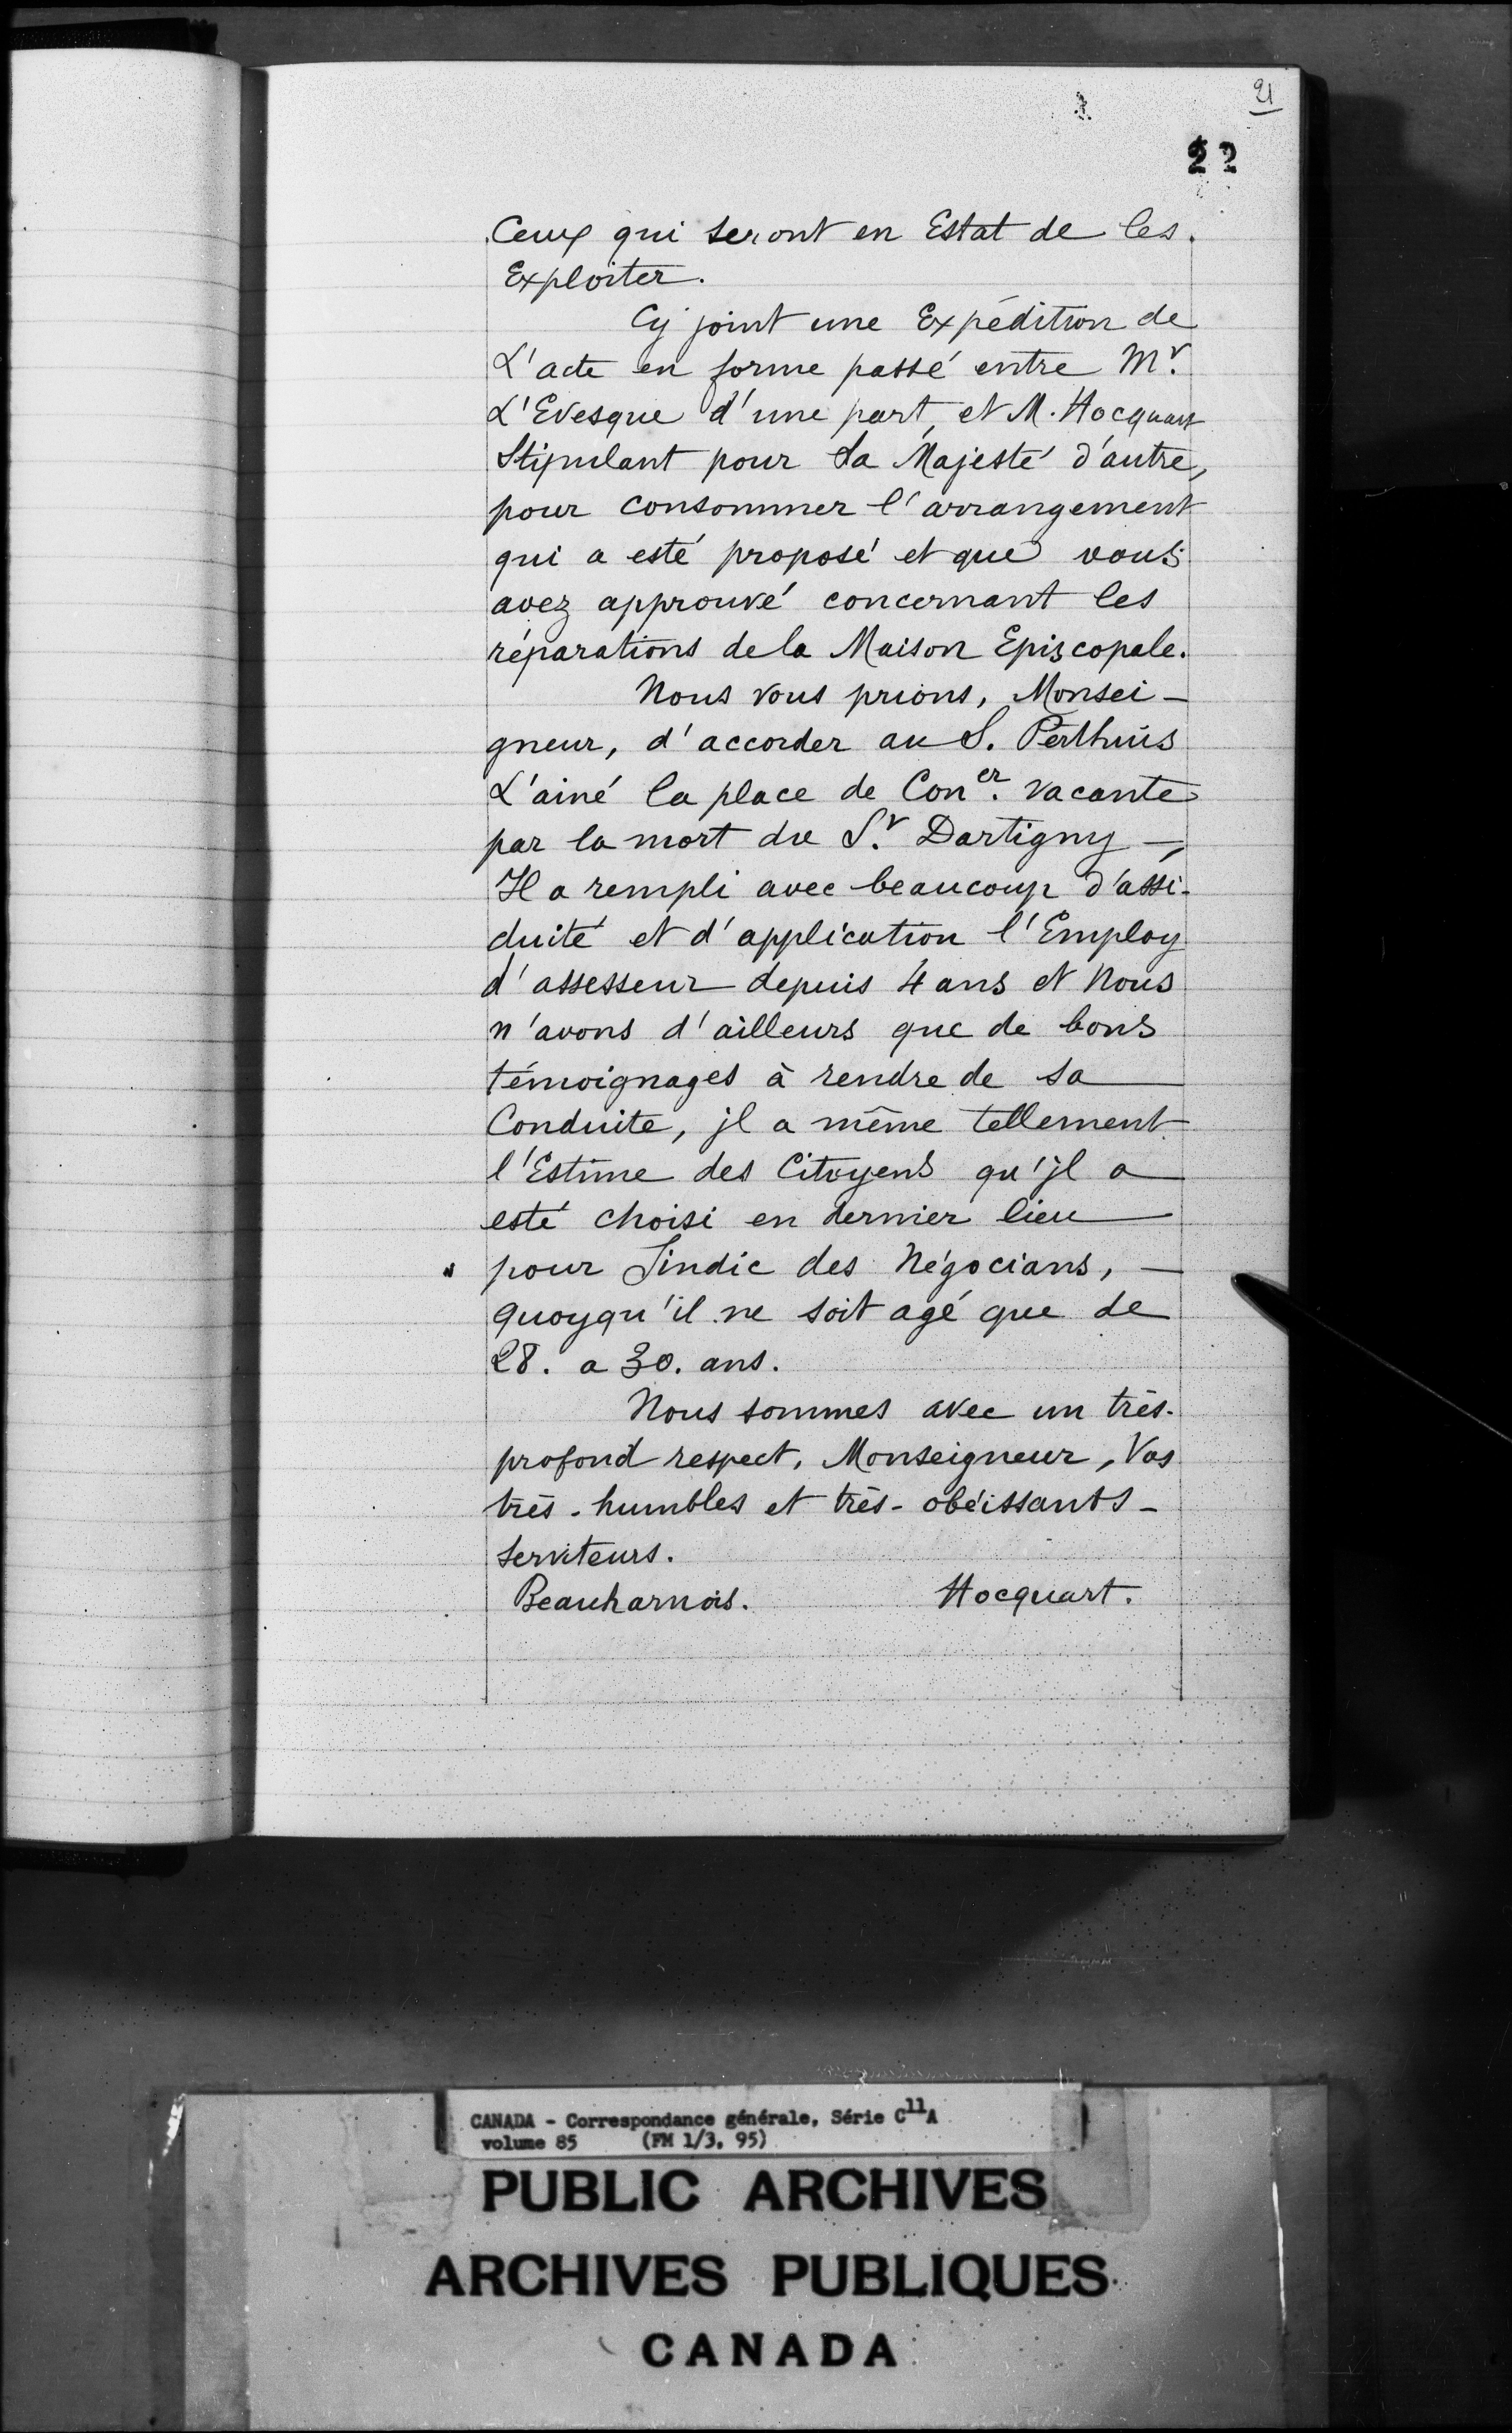 21
22
Ceux qui seront en Estat de les
Exploiter.
Cy joint une Expédition de
L'acte en forme passé entre Mr.
L'Evesque d'une part, et M. Hocquart
Stipulant pour Sa Majesté d'autre,
pour consommer l'arrangement
qui a esté proposé et que vous
avez approuvé concernant les
réparations de la Maison Episcopale.
Nous vous prions, Monsei-
gneur, d'accorder au S. Perthuis
L'ainé la place de Coner. vacante
par la mort du Sr. Dartigny -,
Il a rempli avec beaucoup d'assi-
duité et d'application l'Employ
d'assesseur depuis 4 ans et Nous
n'avons d'ailleurs que de bons
témoignages à rendre de sa
Conduite, jl a même tellement
l'Estime des Citoyens qu'jl a
esté choisi en dernier lieu
pour Sindic des Négocians, -
quoyqu'il ne soit agé que de
28. a 30. ans.
Nous sommes avec un très-
profond respect, Monseigneur, Vos
très-humbles et très-obéissants-
serviteurs.
Beauharnois. Hocquart.
CANADA - Correspondance générale, Série C11A
volume 85 (FM 1/3, 95)
PUBLIC ARCHIVES
ARCHIVES PUBLIQUES
CANADA